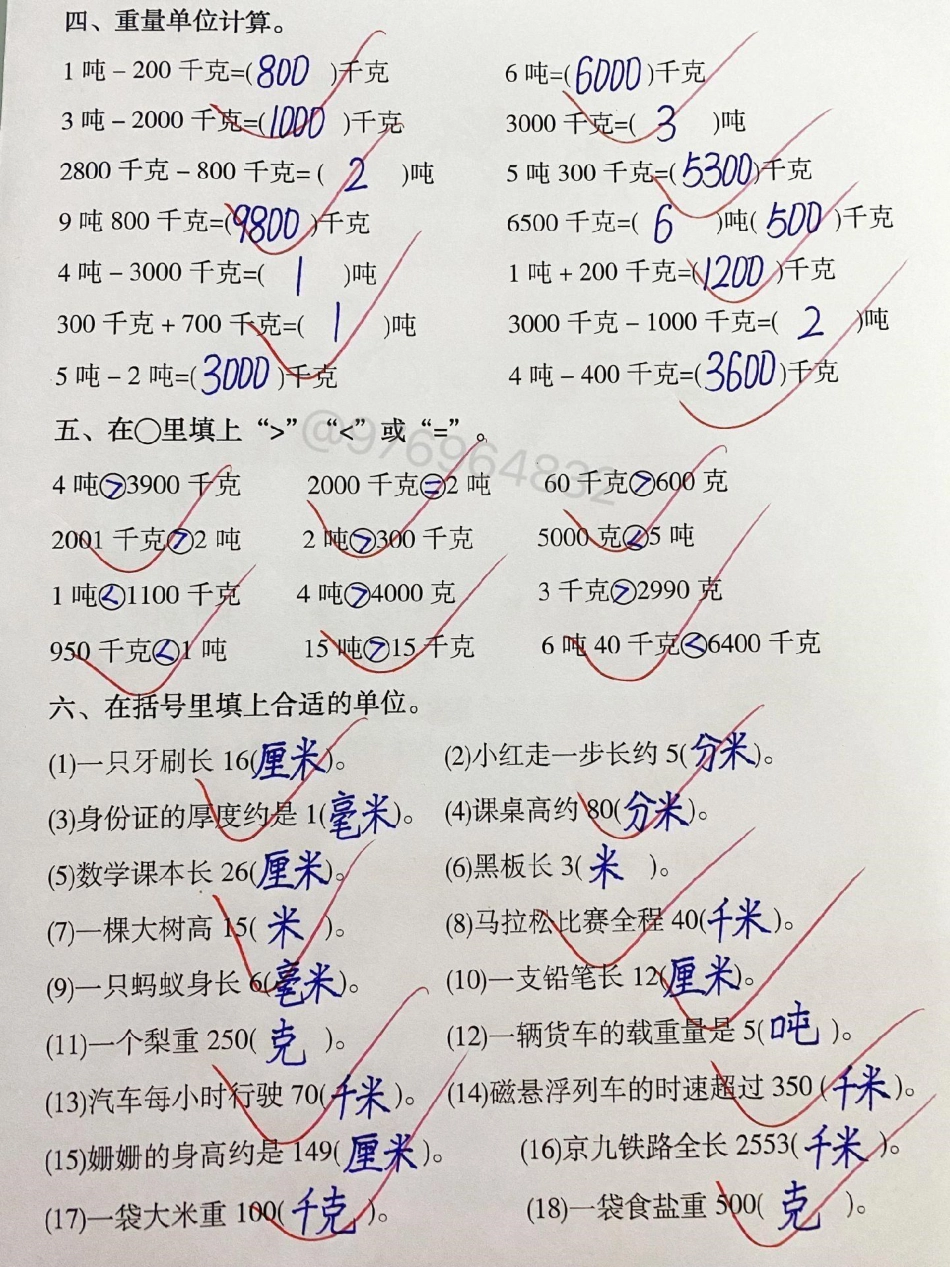 四、重量单位计算。
1 吨－200 千克=(800)千克 6 吨=(6000)千克
3 吨－2000 千克=(1000)千克 3000 千克=(3)吨
2800 千克－800 千克=(2)吨 5 吨 300 千克=(5300)千克
9 吨 800 千克=(9800)千克 6500 千克=(6)吨(500)千克
4 吨－3000 千克=(1)吨 1 吨+200 千克=(1200)千克
300 千克+700 千克=(1)吨 3000 千克－1000 千克=(2)吨
5 吨－2 吨=(3000)千克 4 吨－400 千克=(3600)千克
@976964832
五、在○里填上“>”“<”或“=”。
4 吨>3900 千克 2000 千克=2 吨 60 千克>600 克
2001 千克>2 吨 2 吨>300 千克 5000 克<5 吨
1 吨<1100 千克 4 吨>4000 克 3 千克>2990 克
950 千克<1 吨 15 吨>15 千克 6 吨 40 千克<6400 千克
六、在括号里填上合适的单位。
(1)一只牙刷长 16(厘米)。 (2)小红走一步长约 5(分米)。
(3)身份证的厚度约是 1(毫米)。 (4)课桌高约 80(分米)。
(5)数学课本长 26(厘米)。 (6)黑板长 3(米)。
(7)一棵大树高 15(米)。 (8)马拉松比赛全程 40(千米)。
(9)一只蚂蚁身长 6(毫米)。 (10)一支铅笔长 12(厘米)。
(11)一个梨重 250(克)。 (12)一辆货车的载重量是 5(吨)。
(13)汽车每小时行驶 70(千米)。 (14)磁悬浮列车的时速超过 350(千米)。
(15)姗姗的身高约是 149(厘米)。 (16)京九铁路全长 2553(千米)。
(17)一袋大米重 100(千克)。 (18)一袋食盐重 500(克)。